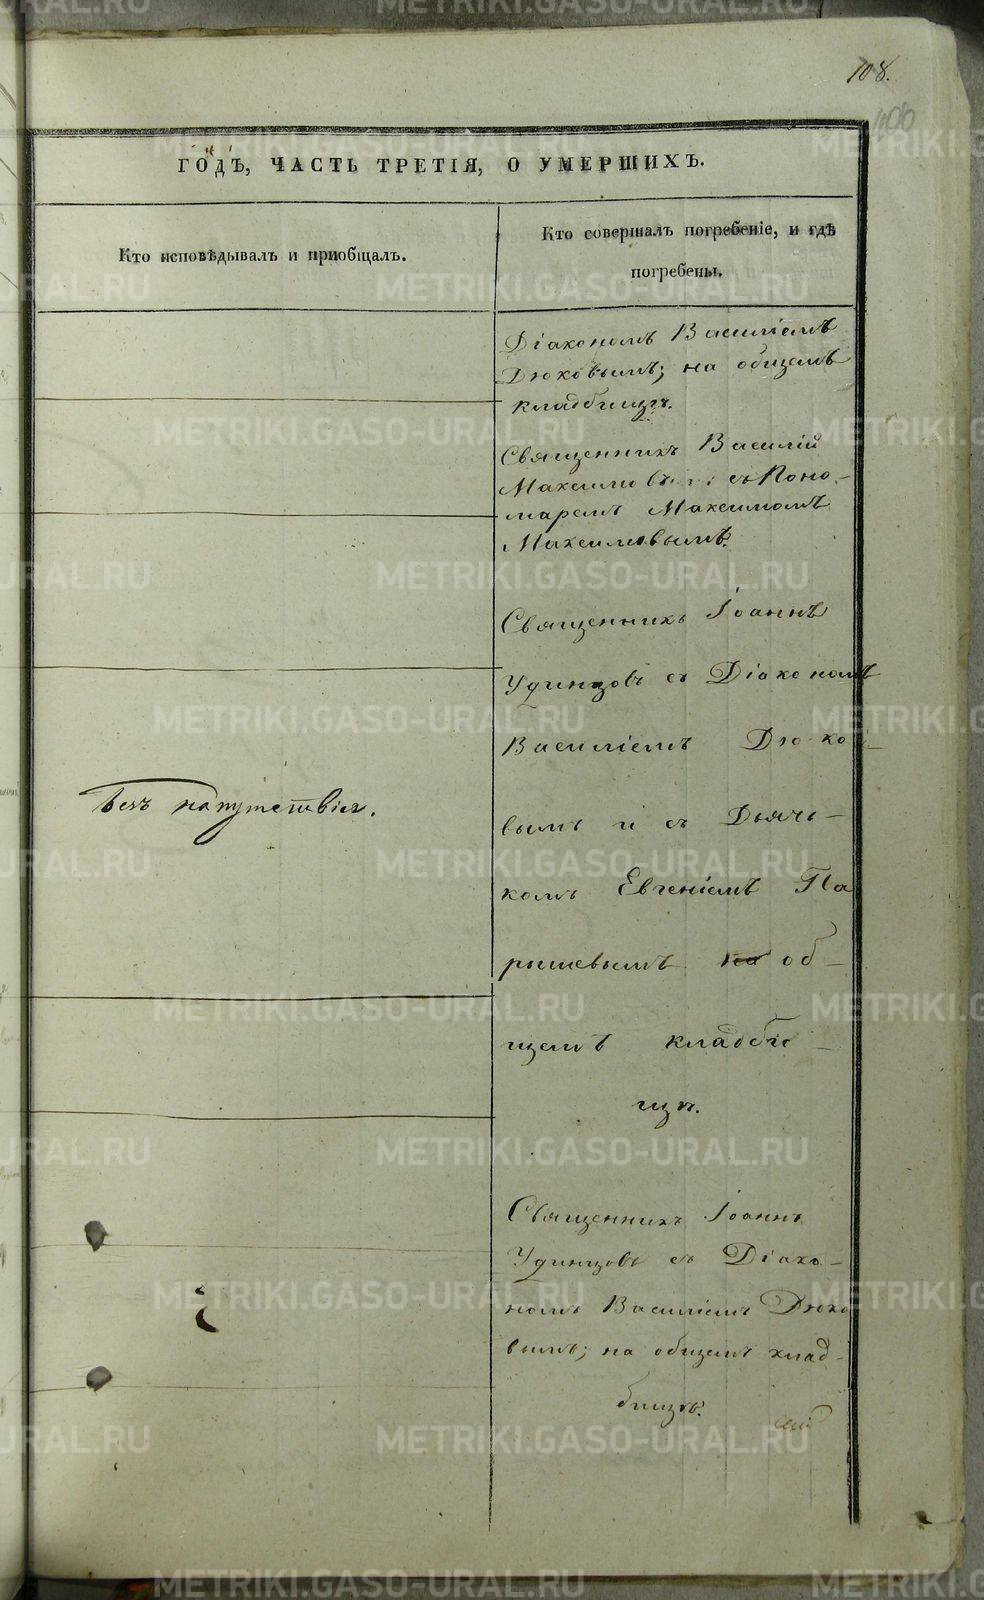 108.
ГОДЪ, ЧАСТЬ ТРЕТІЯ, О УМЕРШИХЪ.
Кто исповѣдывалъ и пріобщалъ.
Кто совершалъ погребеніе, и гдѣ
погребены.
Діакономъ Василіемъ
Дюковымъ; на общемъ
кладбищѣ.
Священникъ Василій
Максимовъ съ Поно-
маремъ Максимомъ
Максимовымъ.
Священникъ Іоаннъ
Удинцовъ съ Діакономъ
Василіемъ Дюко-
вымъ и съ Дьячь-
комъ Евгеніемъ Па
рышевымъ на об-
щемъ кладби-
щѣ.
Безъ напутствія.
Священникъ Іоаннъ
Удинцовъ съ Діако-
номъ Василіемъ Дюко
вымъ; на общемъ клад-
бищѣ.
METRIKI.GASO-URAL.RU